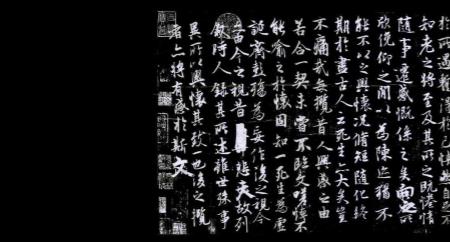 於所遇暫得於己怏然自足不
知老之將至及其所之既惓情
隨事遷感慨係之矣向之所
欣俛仰之間以為陳迹猶不
能不以之興懷況脩短隨化終
期於盡古人云死生亦大矣豈
不痛哉每攬昔人興感之由
若合一契未嘗不臨文嗟悼不
能喻之於懷固知一死生為虛
誕齊彭殤為妄作後之視今
亦由今之視昔悲夫故列
敘時人錄其所述雖世殊事
異所以興懷其致一也後之攬
者亦將有感於斯文